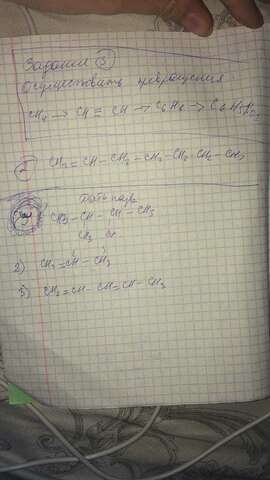 Задание 3
Осуществить превращения
CH4 → CH ≡ CH → C6H6 → C6H5
CH2 = CH – CH2 – CH2 – CH2 – CH2 – CH3
Дать назв
CH3 – CH – CH – CH3
CH3
2) CH2 = CH – CH3
3) CH2 = CH – CH = CH – CH3